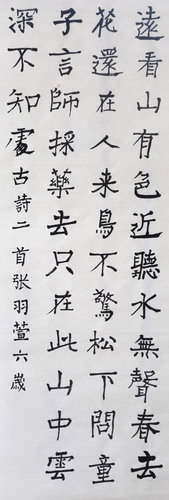 遠看山有色近聽水無聲春去
花還在人来鳥不驚松下問童
子言師採藥去只在此山中雲
深不知處古詩二首张羽萱六歲